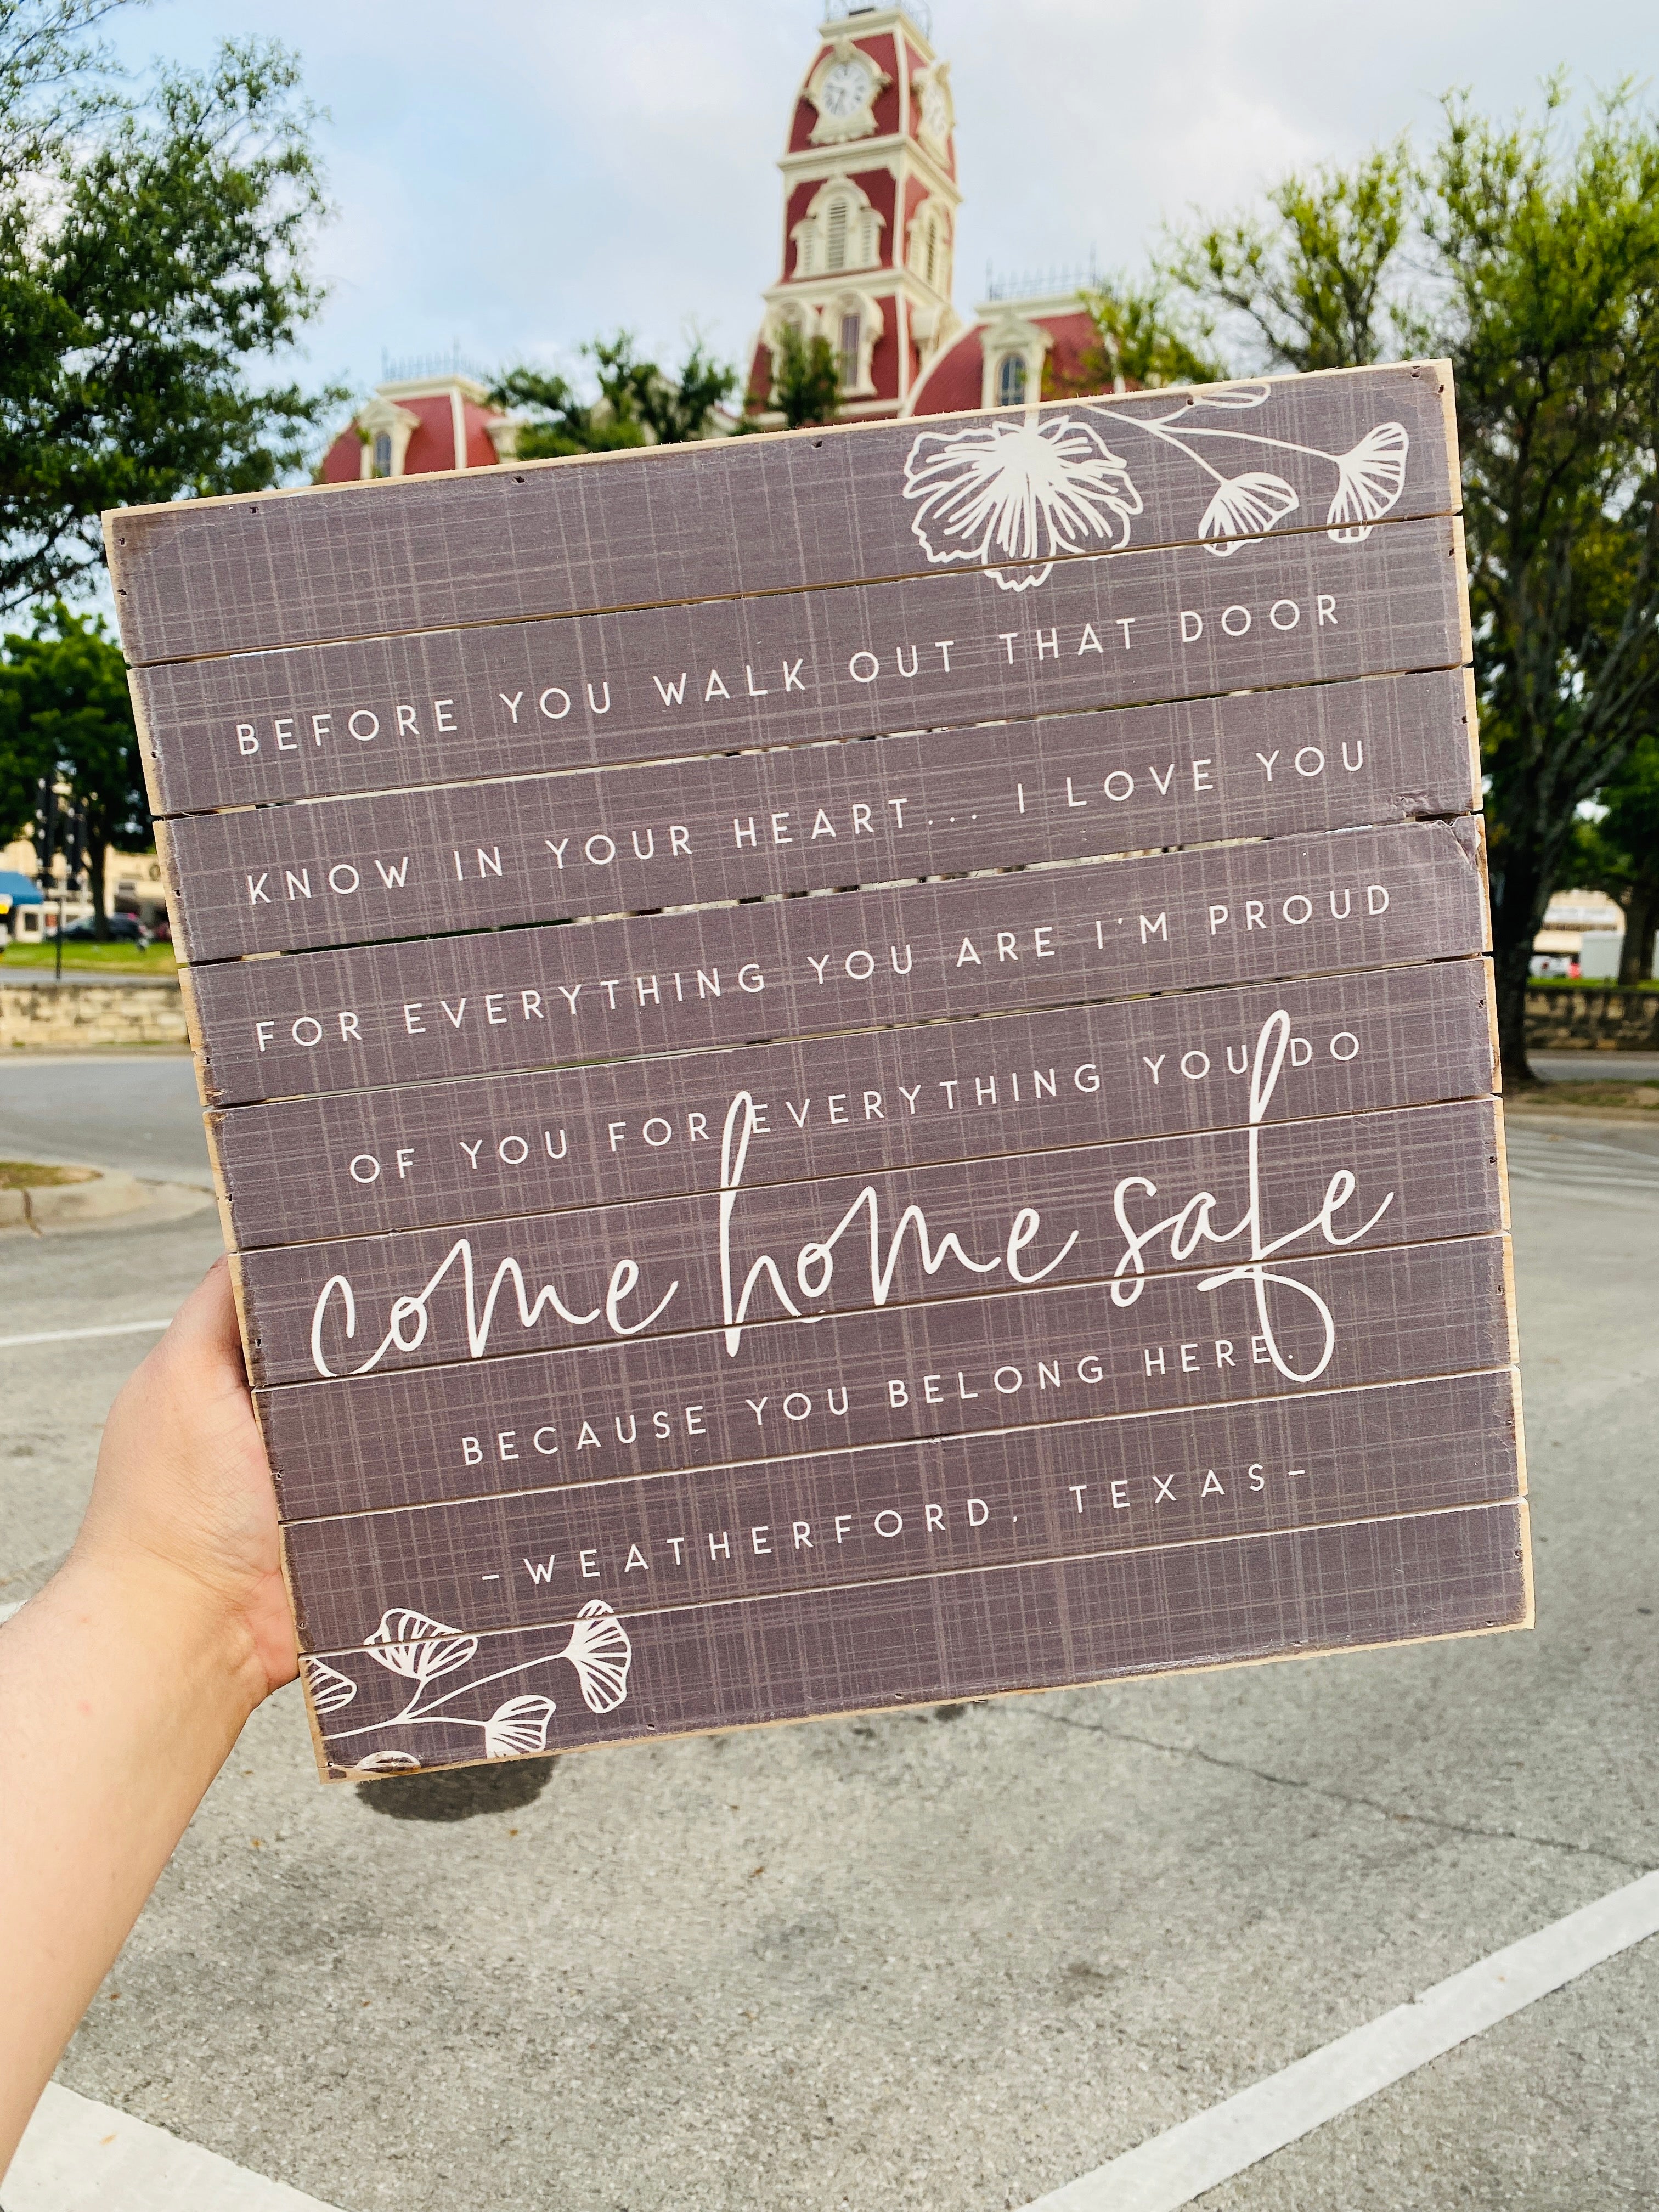 BEFORE YOU WALK OUT THAT DOOR
KNOW IN YOUR HEART... I LOVE YOU
FOR EVERYTHING YOU ARE I'M PROUD
OF YOU FOR EVERYTHING YOU DO
come home safe
BECAUSE YOU BELONG HERE.
-WEATHERFORD, TEXAS-